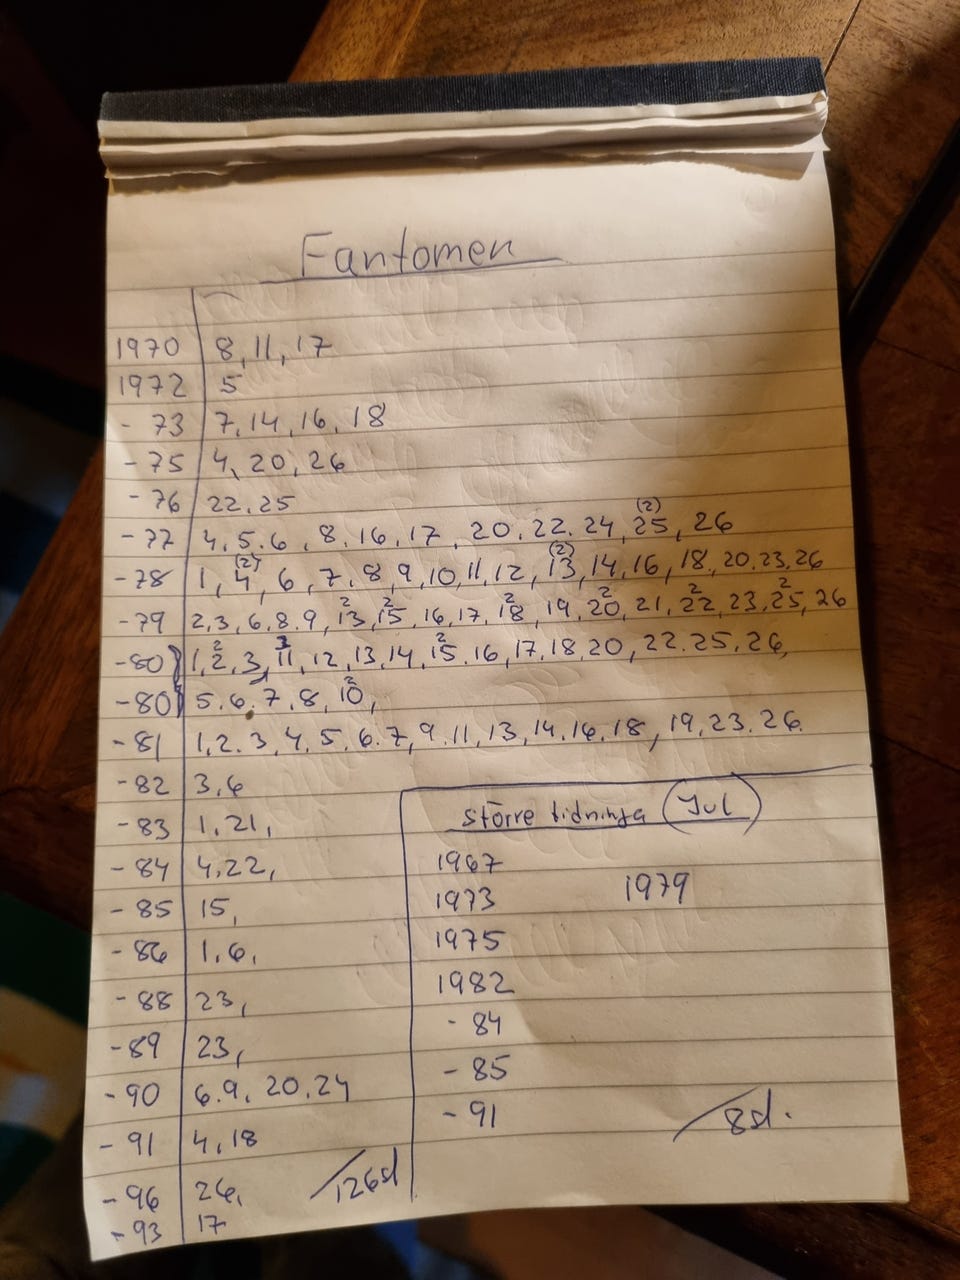 Fantomen
1970 8, 11, 17
1972 5
- 73 7, 14, 16, 18
- 75 4, 20, 26
- 76 22, 25
- 77 4, 5, 6, 8, 16, 17, 20, 22, 24, 25 (2), 26
- 78 1, 4 (2), 6, 7, 8, 9, 10, 11, 12, 13 (2), 14, 16, 18, 20, 23, 26
- 79 2, 3, 6, 8, 9, 13 2, 15 2, 16, 17, 18 2, 19, 20 2, 21, 22 2, 23, 25 2, 26
- 80 1, 2 2, 3, 11 3, 12, 13, 14, 15 2, 16, 17, 18, 20, 22, 25, 26,
- 80 5, 6, 7, 8, 10 2,
- 81 1, 2, 3, 4, 5, 6, 7, 9, 11, 13, 14, 16, 18, 19, 23, 26.
- 82 3, 6
- 83 1, 21,
- 84 4, 22,
- 85 15,
- 86 1, 6,
- 88 23,
- 89 23,
- 90 6, 9, 20, 24
- 91 4, 18
- 96 26,
- 93 17
/126st
större tidninga (Jul)
1967
1973 1979
1975
1982
- 84
- 85
- 91
/8st.